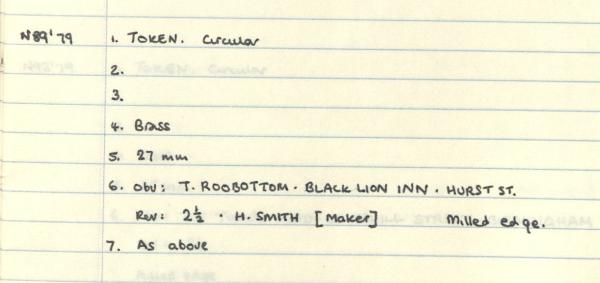 N89'79 1. TOKEN. Circular
2.
3.
4. Brass
5. 27 mm
6. Obv: T. ROOBOTTOM · BLACK LION INN · HURST ST.
Rev: 2½ · H. SMITH [Maker] Milled edge.
7. As above